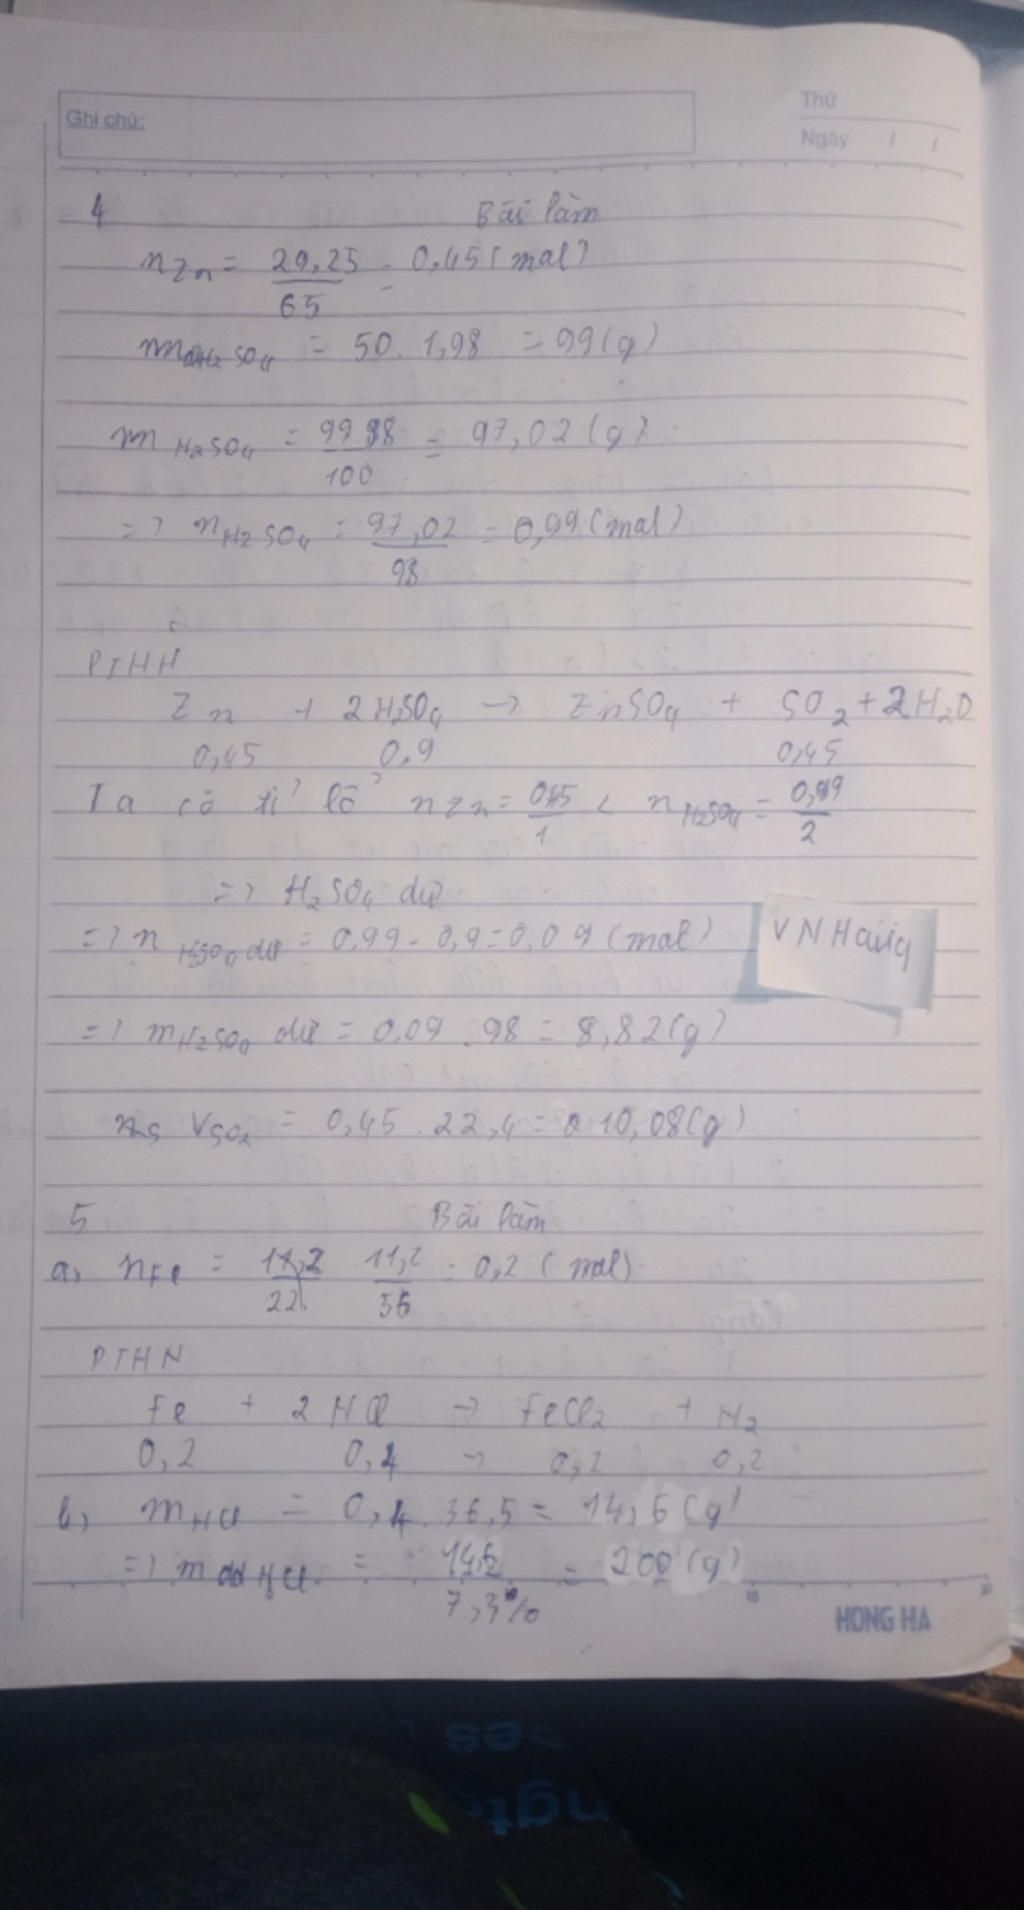 Ghi chú:
Thứ
Ngày / /
4 Bài làm
nZn = 29,25/65 = 0,45 (mol)
mddH2SO4 = 50. 1,98 = 99 (g)
mH2SO4 = 99.98/100 = 97,02 (g)
=> nH2SO4 = 97,02/98 = 0,99 (mol)
PTHH
Zn + 2H2SO4 → ZnSO4 + SO2 + 2H2O
0,45 0,9 0,45
Ta có tỉ lệ nZn = 0,45/1 < nH2SO4 = 0,99/2
=> H2SO4 dư
=> nH2SO4 dư = 0,99 - 0,9 = 0,09 (mol)
VNHang
=> mH2SO4 dư = 0,09 . 98 = 8,82 (g)
VSO2 = 0,45 . 22,4 = 10,08 (g)
5 Bài làm
a, nFe = 11,2/56 = 0,2 (mol)
PTHH
Fe + 2HCl → FeCl2 + H2
0,2 0,4 → 0,2 0,2
b, mHCl = 0,4. 36,5 = 14,6 (g)
=> mddHCl = 14,6/7,3% = 200 (g)
15 20
HONG HA